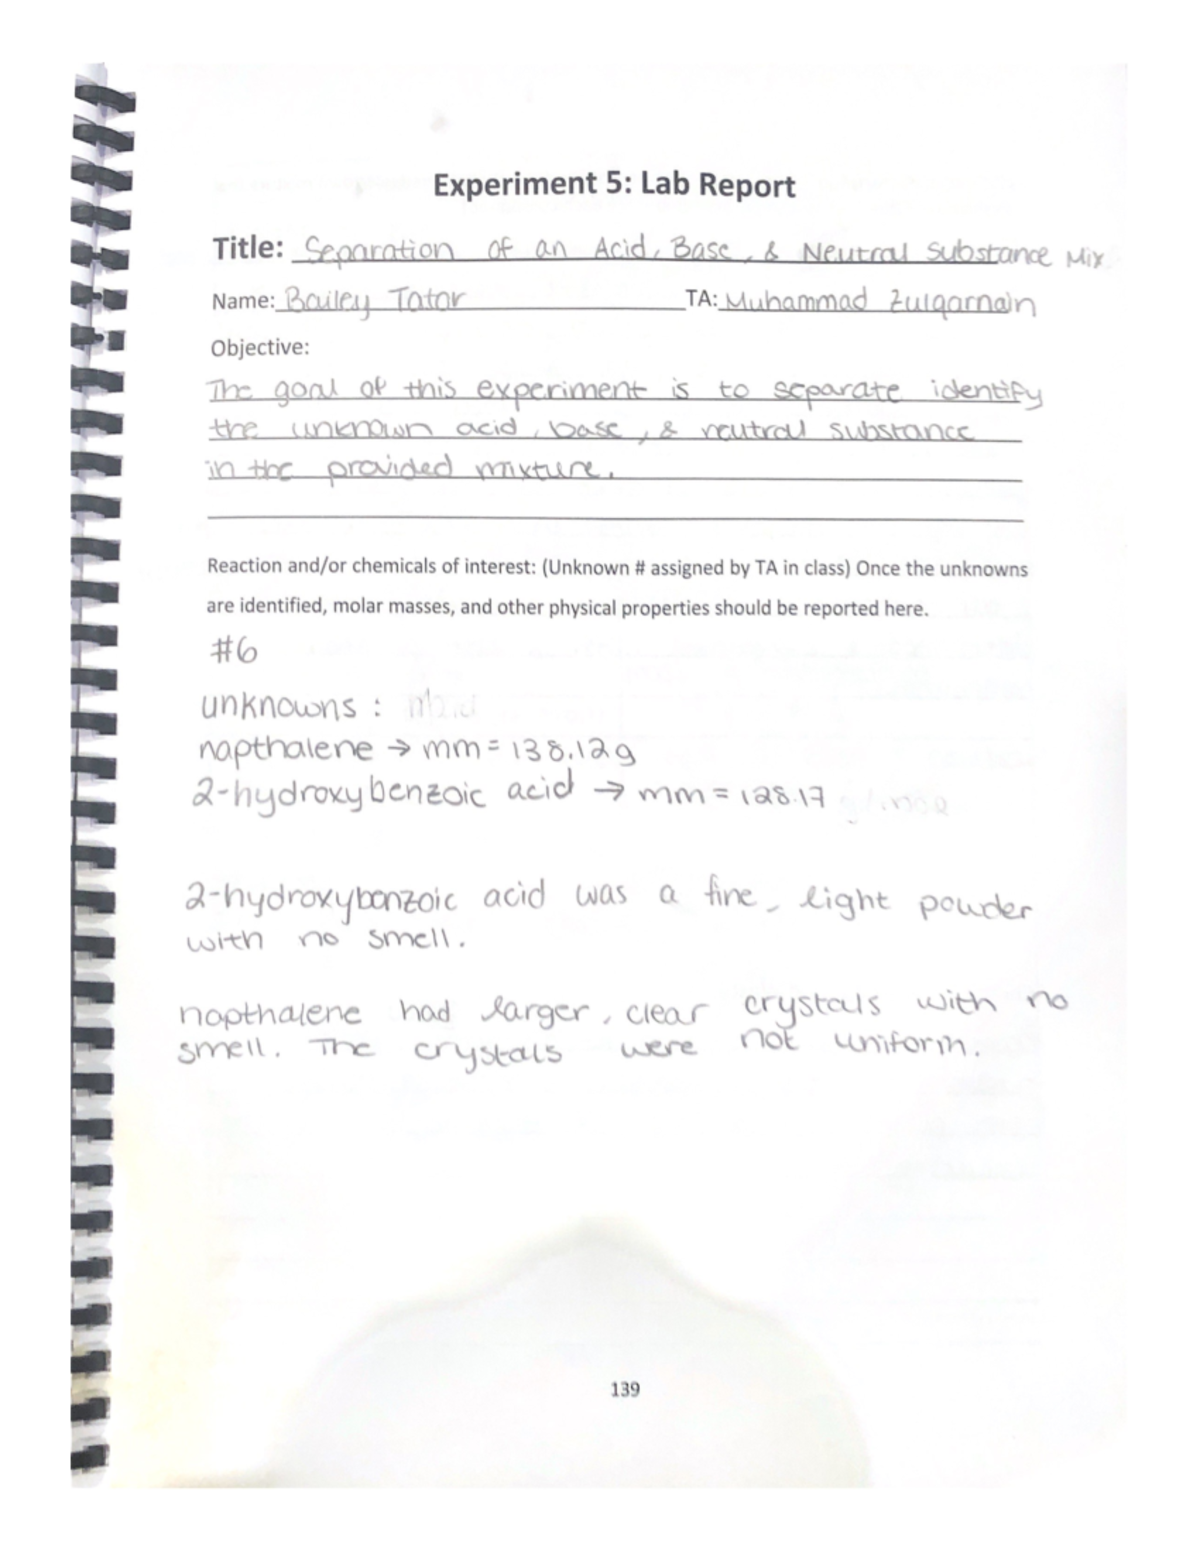 Experiment 5: Lab Report
Title: Separation of an Acid, Base, & Neutral Substance Mix
Name: Bailey Tator TA: Muhammad Zulqarnain
Objective:
The goal of this experiment is to separate identify
the unknown acid, base, & neutral substance
in the provided mixture.
Reaction and/or chemicals of interest: (Unknown # assigned by TA in class) Once the unknowns
are identified, molar masses, and other physical properties should be reported here.
#6
unknowns :
napthalene → mm = 138.12g
2-hydroxybenzoic acid → mm = 128.17
2-hydroxybenzoic acid was a fine, light powder
with no smell.
napthalene had larger, clear crystals with no
smell. The crystals were not uniform.
139